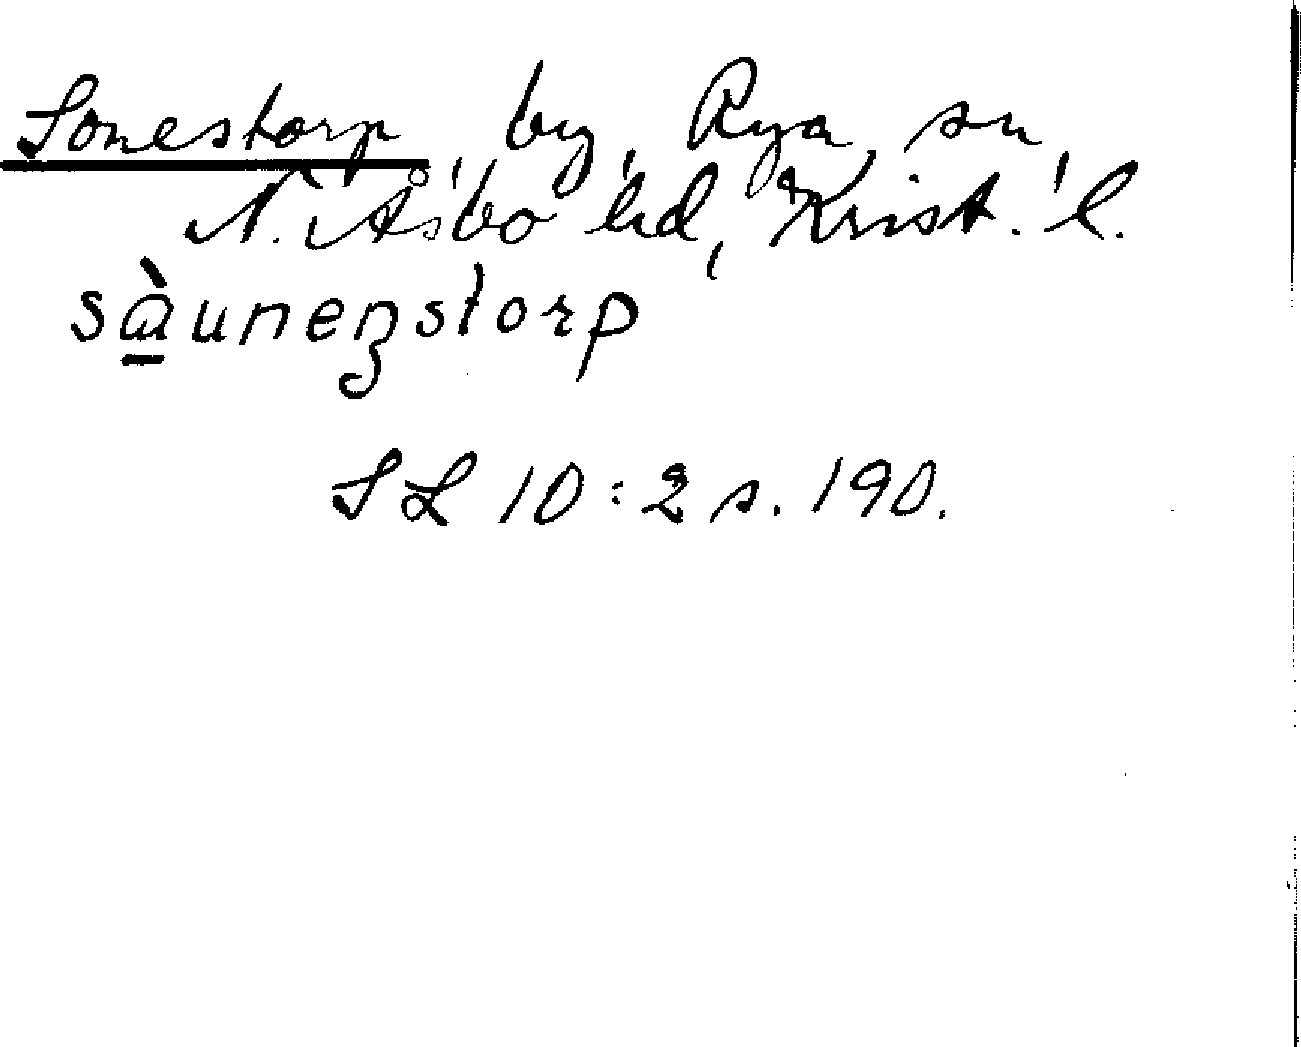 Sonestorp, by, Rya, sn,
N. Åsbo hd, Krist. l.
sàunenstorp
SL 10:2 s. 190.